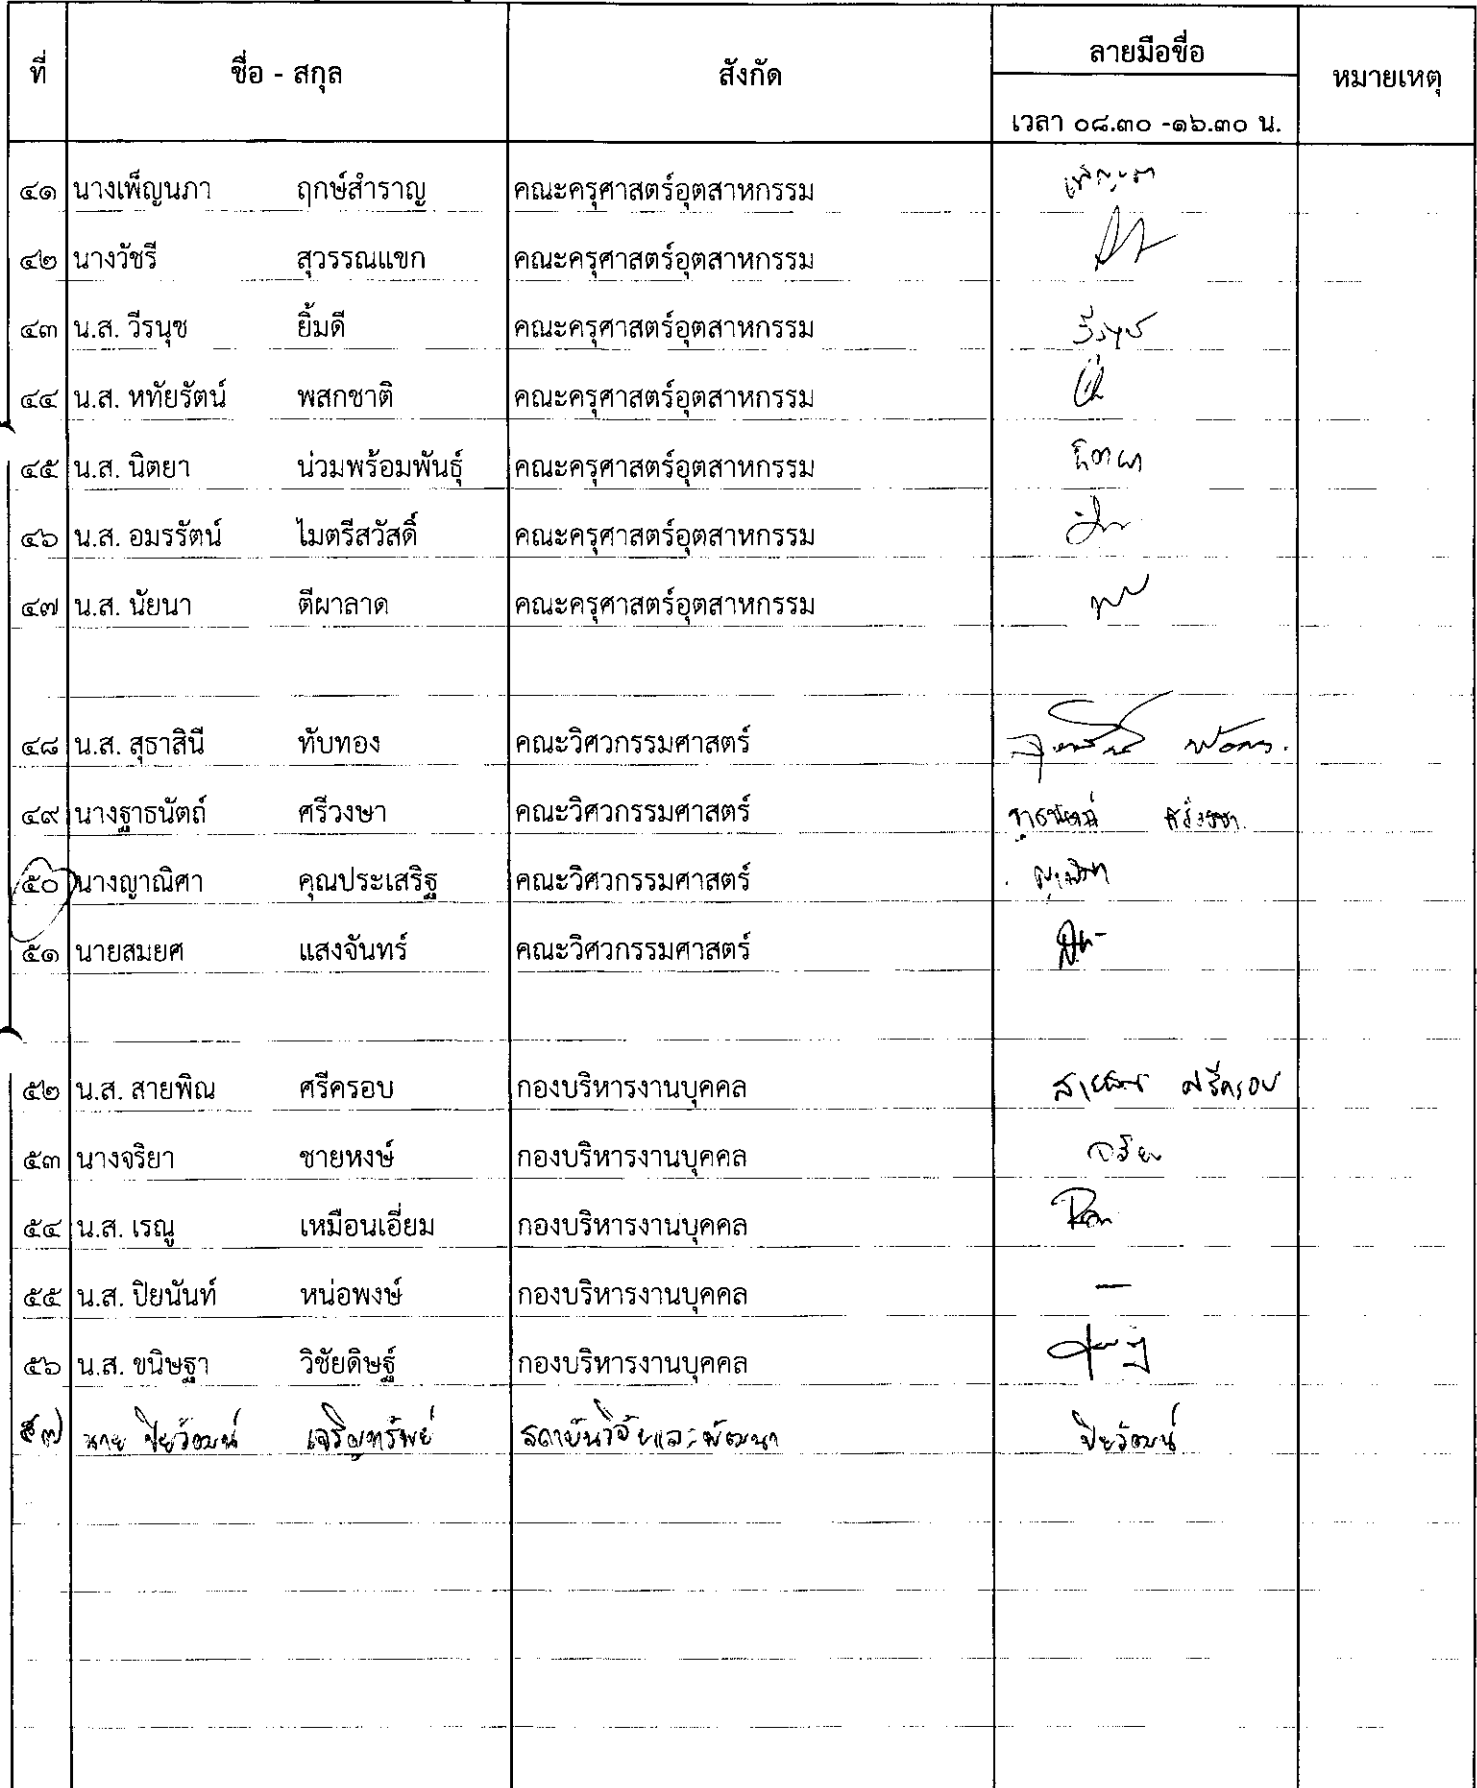 ที่ ชื่อ - สกุล สังกัด ลายมือชื่อ หมายเหตุ
เวลา ๐๘.๓๐ -๑๖.๓๐ น.
๔๑ นางเพ็ญนภา ฤกษ์สำราญ คณะครุศาสตร์อุตสาหกรรม
๔๒ นางวัชรี สุวรรณแขก คณะครุศาสตร์อุตสาหกรรม
๔๓ น.ส. วีรนุช ยิ้มดี คณะครุศาสตร์อุตสาหกรรม วีรนุช
๔๔ น.ส. หทัยรัตน์ พสกชาติ คณะครุศาสตร์อุตสาหกรรม
๔๕ น.ส. นิตยา น่วมพร้อมพันธุ์ คณะครุศาสตร์อุตสาหกรรม นิตยา
๔๖ น.ส. อมรรัตน์ ไมตรีสวัสดิ์ คณะครุศาสตร์อุตสาหกรรม
๔๗ น.ส. นัยนา ตีผาลาด คณะครุศาสตร์อุตสาหกรรม
๔๘ น.ส. สุธาสินี ทับทอง คณะวิศวกรรมศาสตร์
๔๙ นางฐาธนัตถ์ ศรีวงษา คณะวิศวกรรมศาสตร์ ฐาธนัตถ์ ศรีวงษา
๕๐ นางญาณิศา คุณประเสริฐ คณะวิศวกรรมศาสตร์ ญาณิศา
๕๑ นายสมยศ แสงจันทร์ คณะวิศวกรรมศาสตร์
๕๒ น.ส. สายพิณ ศรีครอบ กองบริหารงานบุคคล สายพิณ ศรีครอบ
๕๓ นางจริยา ชายหงษ์ กองบริหารงานบุคคล จริยา
๕๔ น.ส. เรณู เหมือนเอี่ยม กองบริหารงานบุคคล
๕๕ น.ส. ปิยนันท์ หน่อพงษ์ กองบริหารงานบุคคล —
๕๖ น.ส. ขนิษฐา วิชัยดิษฐ์ กองบริหารงานบุคคล
๕๗ นาย ปิยวัฒน์ เจริญทรัพย์ สถาบันวิจัยและพัฒนา ปิยวัฒน์